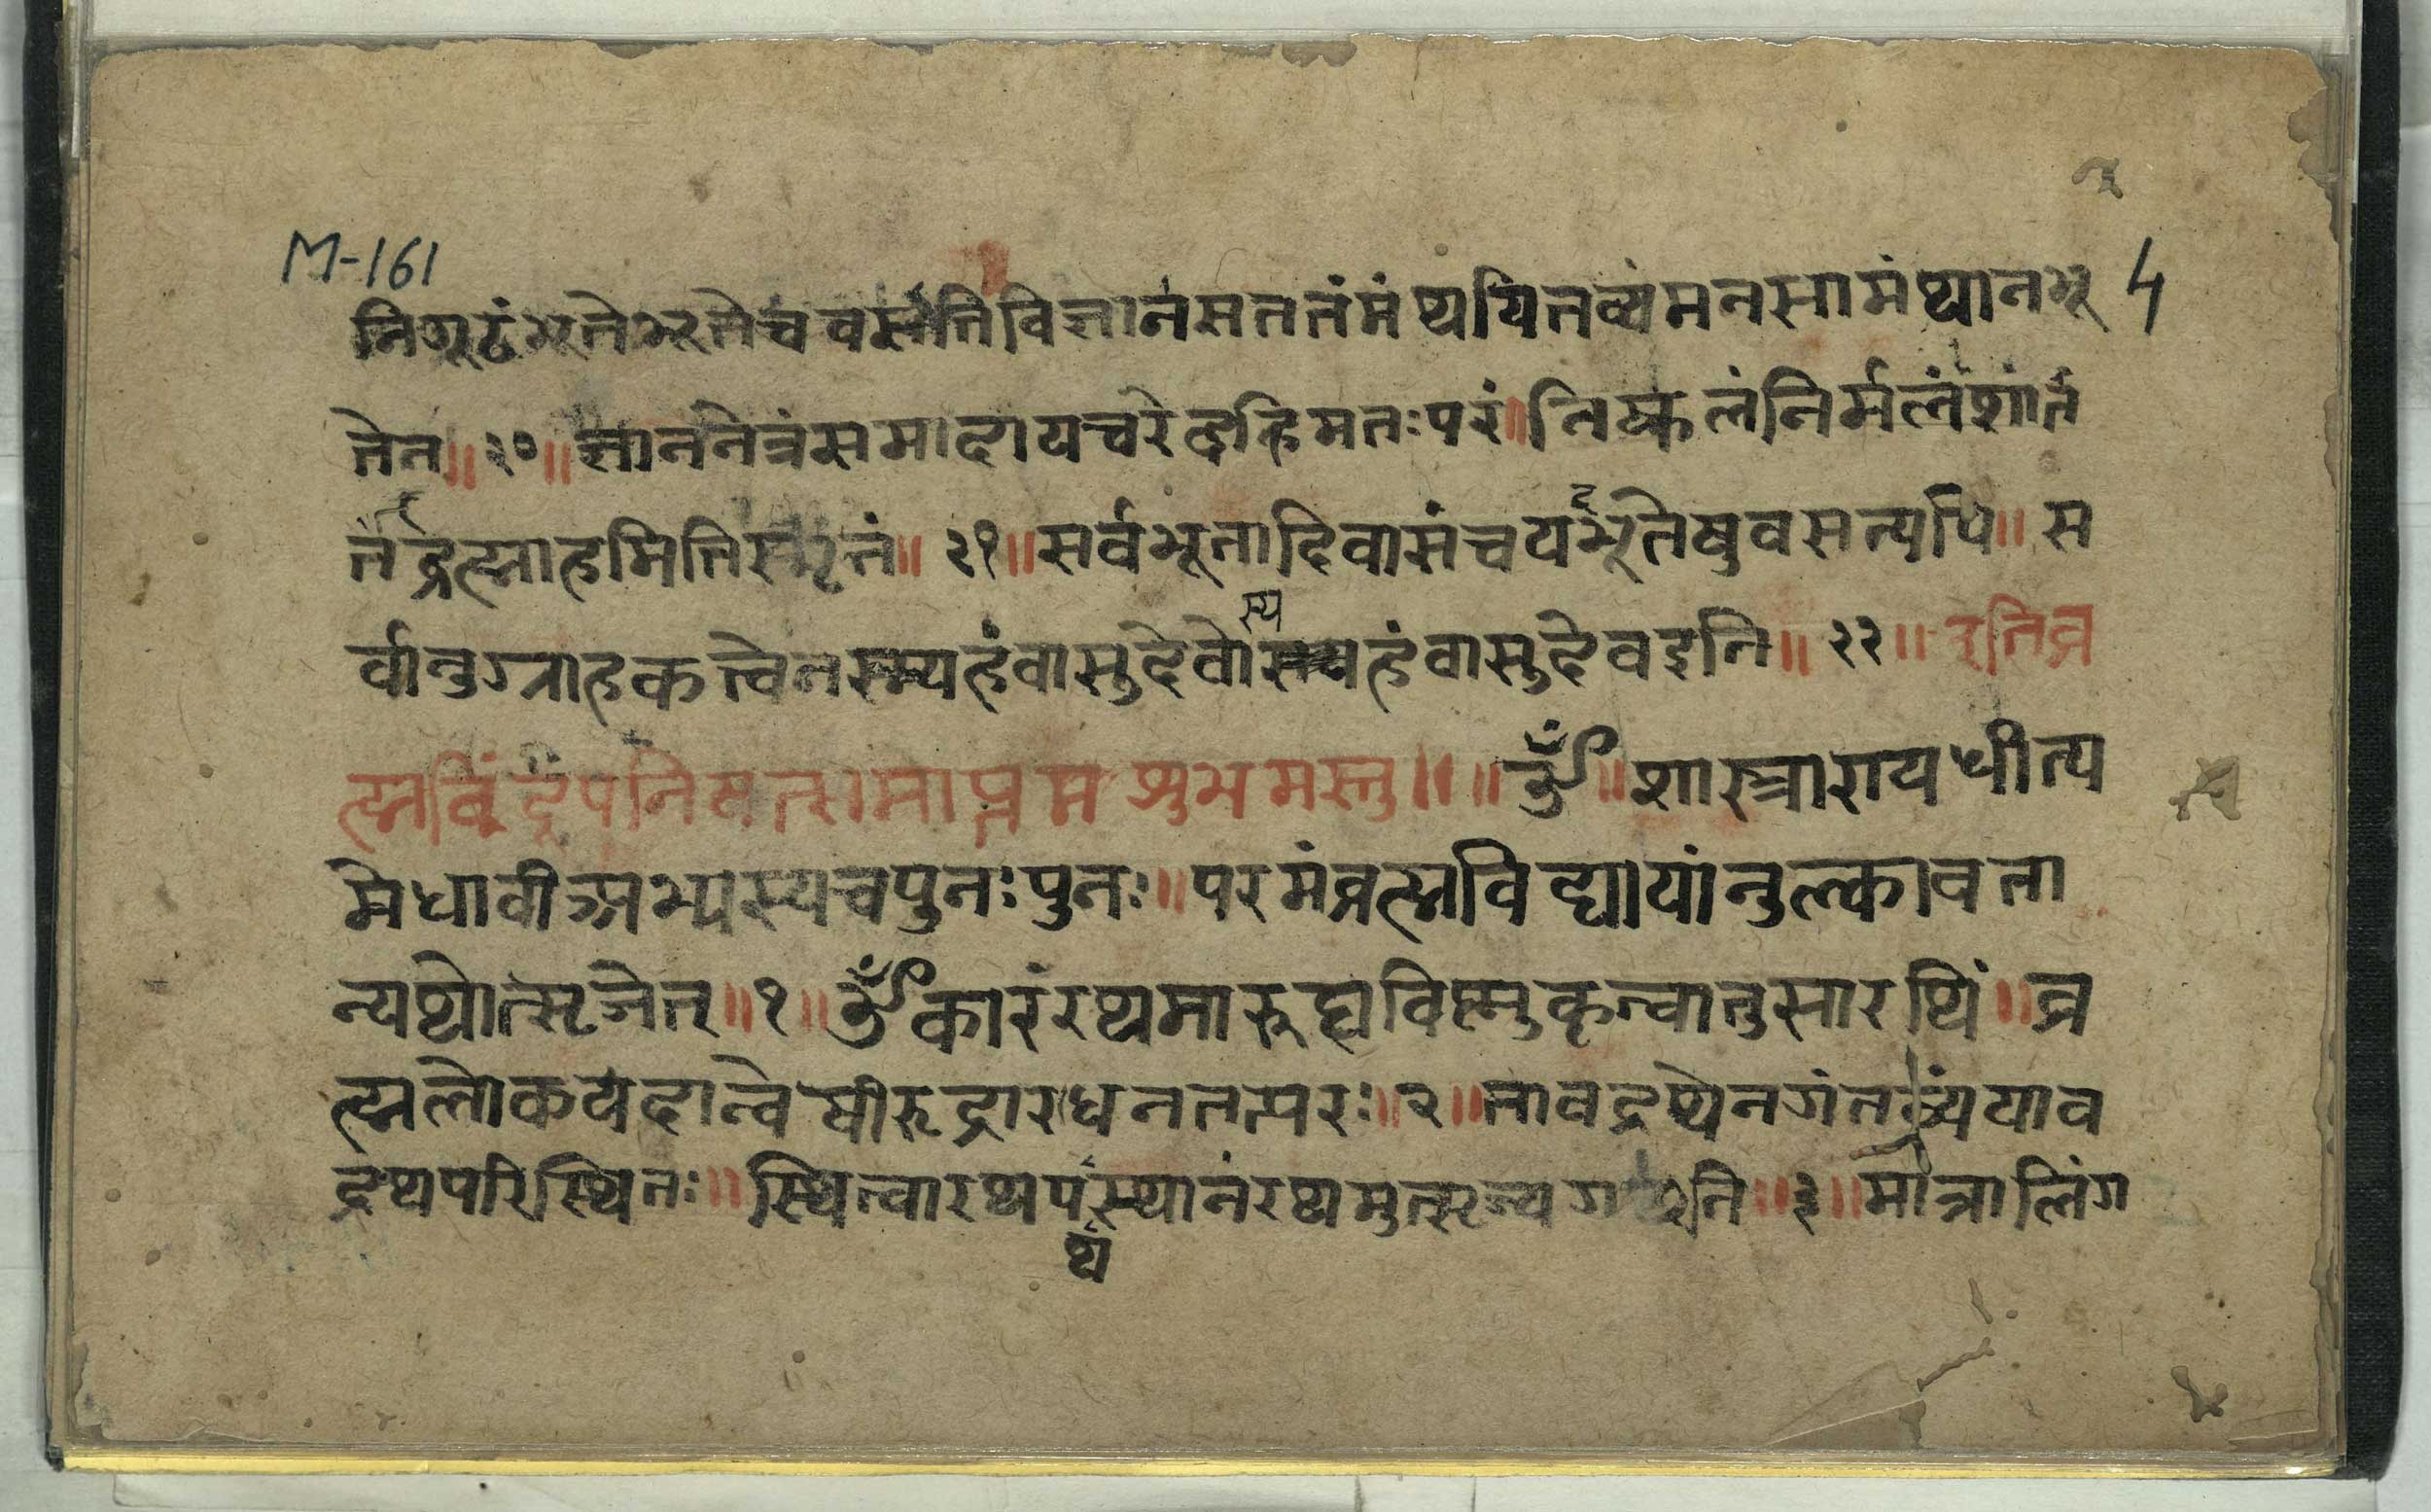 M-161
निगूढंभूतेभूतेचवसतिविज्ञानंसततंमंथयितव्यंमनसामंथानभू
तेन॥२०॥ज्ञाननेत्रंसमादायचरेद्वह्निमतःपरं॥निष्कलंनिर्मलंशांतं
तद्ब्रह्माहमितिस्मृतं॥२१॥सर्वभूतादिवासंचयद्भूतेषुवसत्यपि॥स
र्वानुग्राहकत्वेनस्म्यहंवासुदेवोस्म्यहंवासुदेवइति॥२२॥इतिब्र
ह्मबिंदूपनिषत्समाप्तम शुभमस्तु॥॥ॐ॥शास्त्राण्यधीत्य
मेधावीअभ्यस्यचपुनःपुनः॥परमंब्रह्मविद्यायांनुल्कावता
न्यथोत्सृजेत्॥१॥ॐकारंरथमारुह्यविष्णुकृत्वातुसारथिं॥ब्र
ह्मलोकपदान्वेषीरुद्राराधनतत्परः॥२॥तावद्रथेनगंतव्यंयाव
द्रथपरिस्थितः॥स्थित्वारथपस्थानंरथमुत्सृज्यगछति॥३॥मात्रालिंग
थ